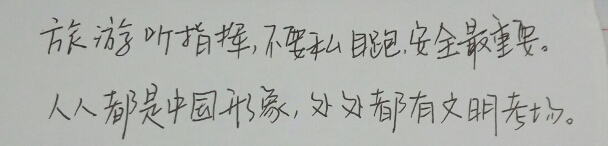 旅游听指挥，不要私自跑，安全最重要。
人人都是中国形象，处处都有文明考场。